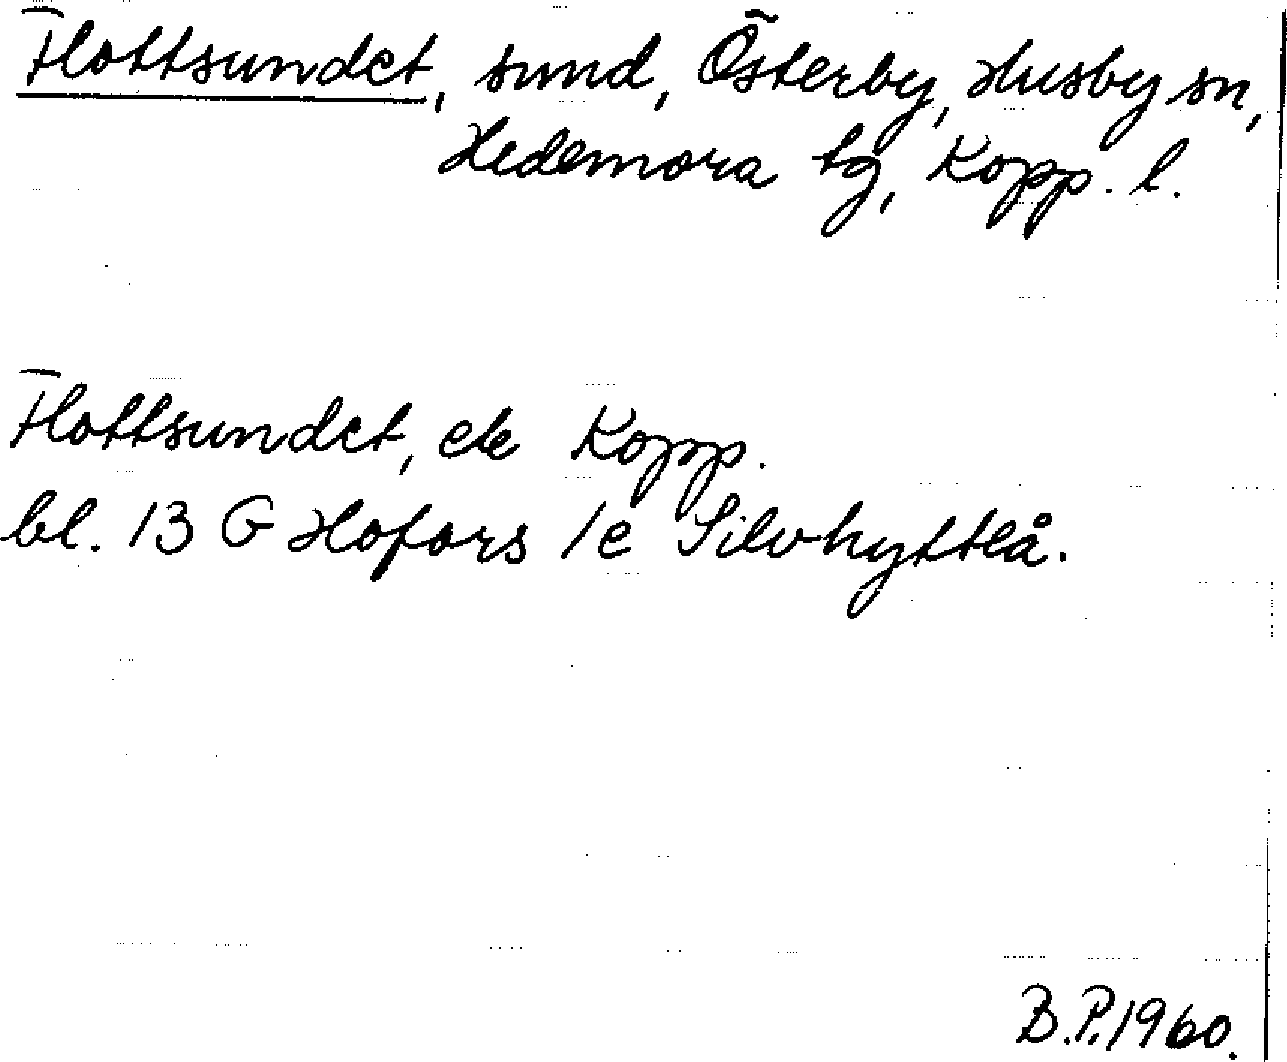 Flottsundet, sund, Österby, Husby sn,
Hedemora tg, Kopp. l.
Flottsundet, ek Kopp.
bl. 13 G Hofors 1e Silvhytteå.
B.P. 1960.